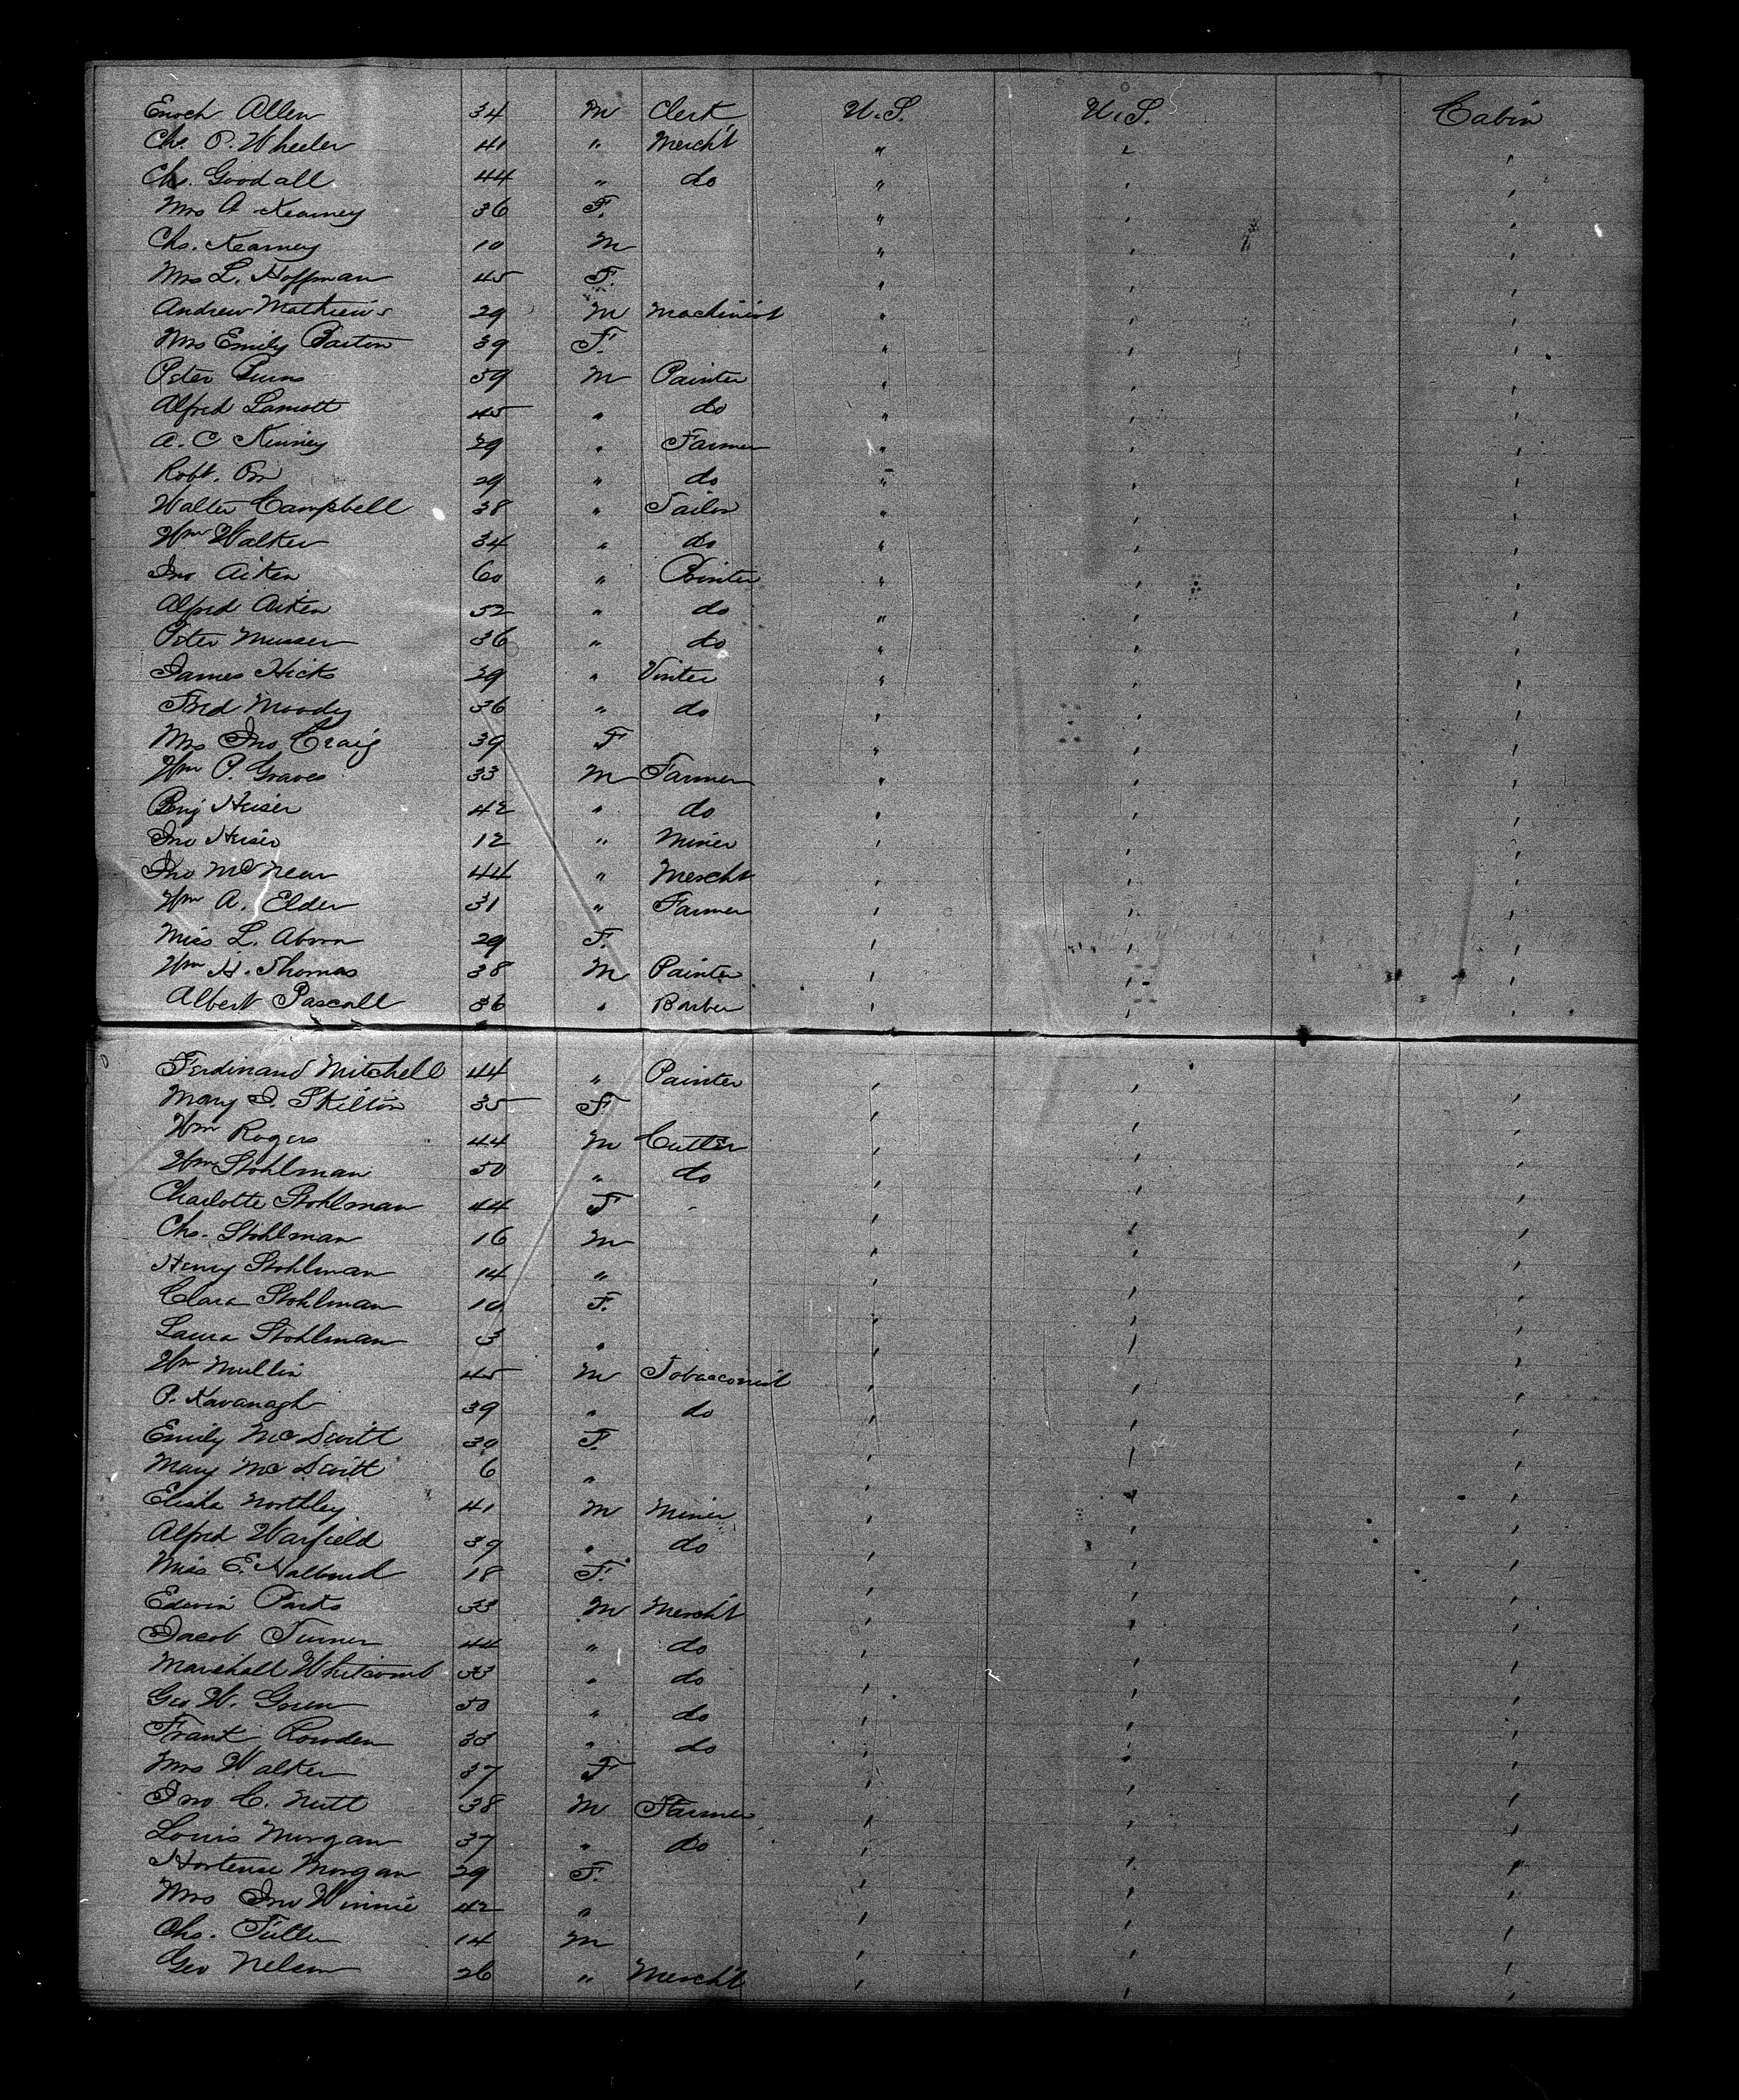 Enoch Allen 34 M Clerk U.S. U.S. Cabin
Chs. P. Wheeler 41 " Mercht " " "
Chs. Goodall 44 " do " " "
Mrs A Kearney 36 F. " " "
Chs. Kearney 10 M " " "
Mrs L. Hoffman 45 F. " " "
Andrew Mathews 29 M Machinist " " "
Mrs Emily Barton 39 F. " " "
Peter Burns 59 M Painter " " "
Alfred Lamott 45 " do " " "
A. C Kenney 29 " Farmer " " "
Robt. Orr 29 " do " " "
Walter Campbell 38 " Tailor " " "
Wm Walker 34 " do " " "
Jno Aiken 60 " Printer " " "
Alfred Aiken 52 " do " " "
Peter Musser 36 " do " " "
James Hicks 29 " Vinter " " "
Fred Moody 36 " do " " "
Mrs Jno Craig 39 F " " "
Wm P. Graves 33 M Farmer " " "
Benj Heiser 42 " do " " "
Jno Heiser 12 " Miner " " "
Jno McNear 44 " Mercht " " "
Wm A. Elder 31 " Farmer " " "
Miss L. Aborn 29 F. " " "
Wm H. Thomas 38 M Painter " " "
Albert Pascall 36 " Barber " " "
Ferdinand Mitchell 44 " Painter " " "
Mary I. Skilton 35 F " " "
Wm Rogers 44 M Cutter " " "
Wm Stohlman 50 " do " " "
Charlotte Stohlman 44 F " " "
Chs. Stohlman 16 M " " "
Henry Stohlman 14 " " " "
Clara Stohlman 10 F. " " "
Laura Stohlman 3 " " " "
Wm Mullin 45 M Tobacconist " " "
P. Kavanagh 39 " do " " "
Emily McDevitt 30 F. " " "
Mary McDevitt 6 " " " "
Elisha Northley 41 M Miner " " "
Alfred Warfield 39 " do " " "
Miss E. 18 F. " " "
Edwin Parks 33 M Mercht " " "
Jacob Turner 44 " do " " "
Marshall Whitcomb 33 " do " " "
Geo W. Green 50 " do " " "
Frank Rowden 33 " do " " "
Mrs Walker 37 F " " "
Jno C. Nutt 38 M Farmer " " "
Louis Morgan 37 " do " " "
Hortense Morgan 29 F. " " "
Mrs Jno Winnie 42 " " " "
Chs. Fuller 14 M " " "
Geo Nelson 26 " Mercht " " "